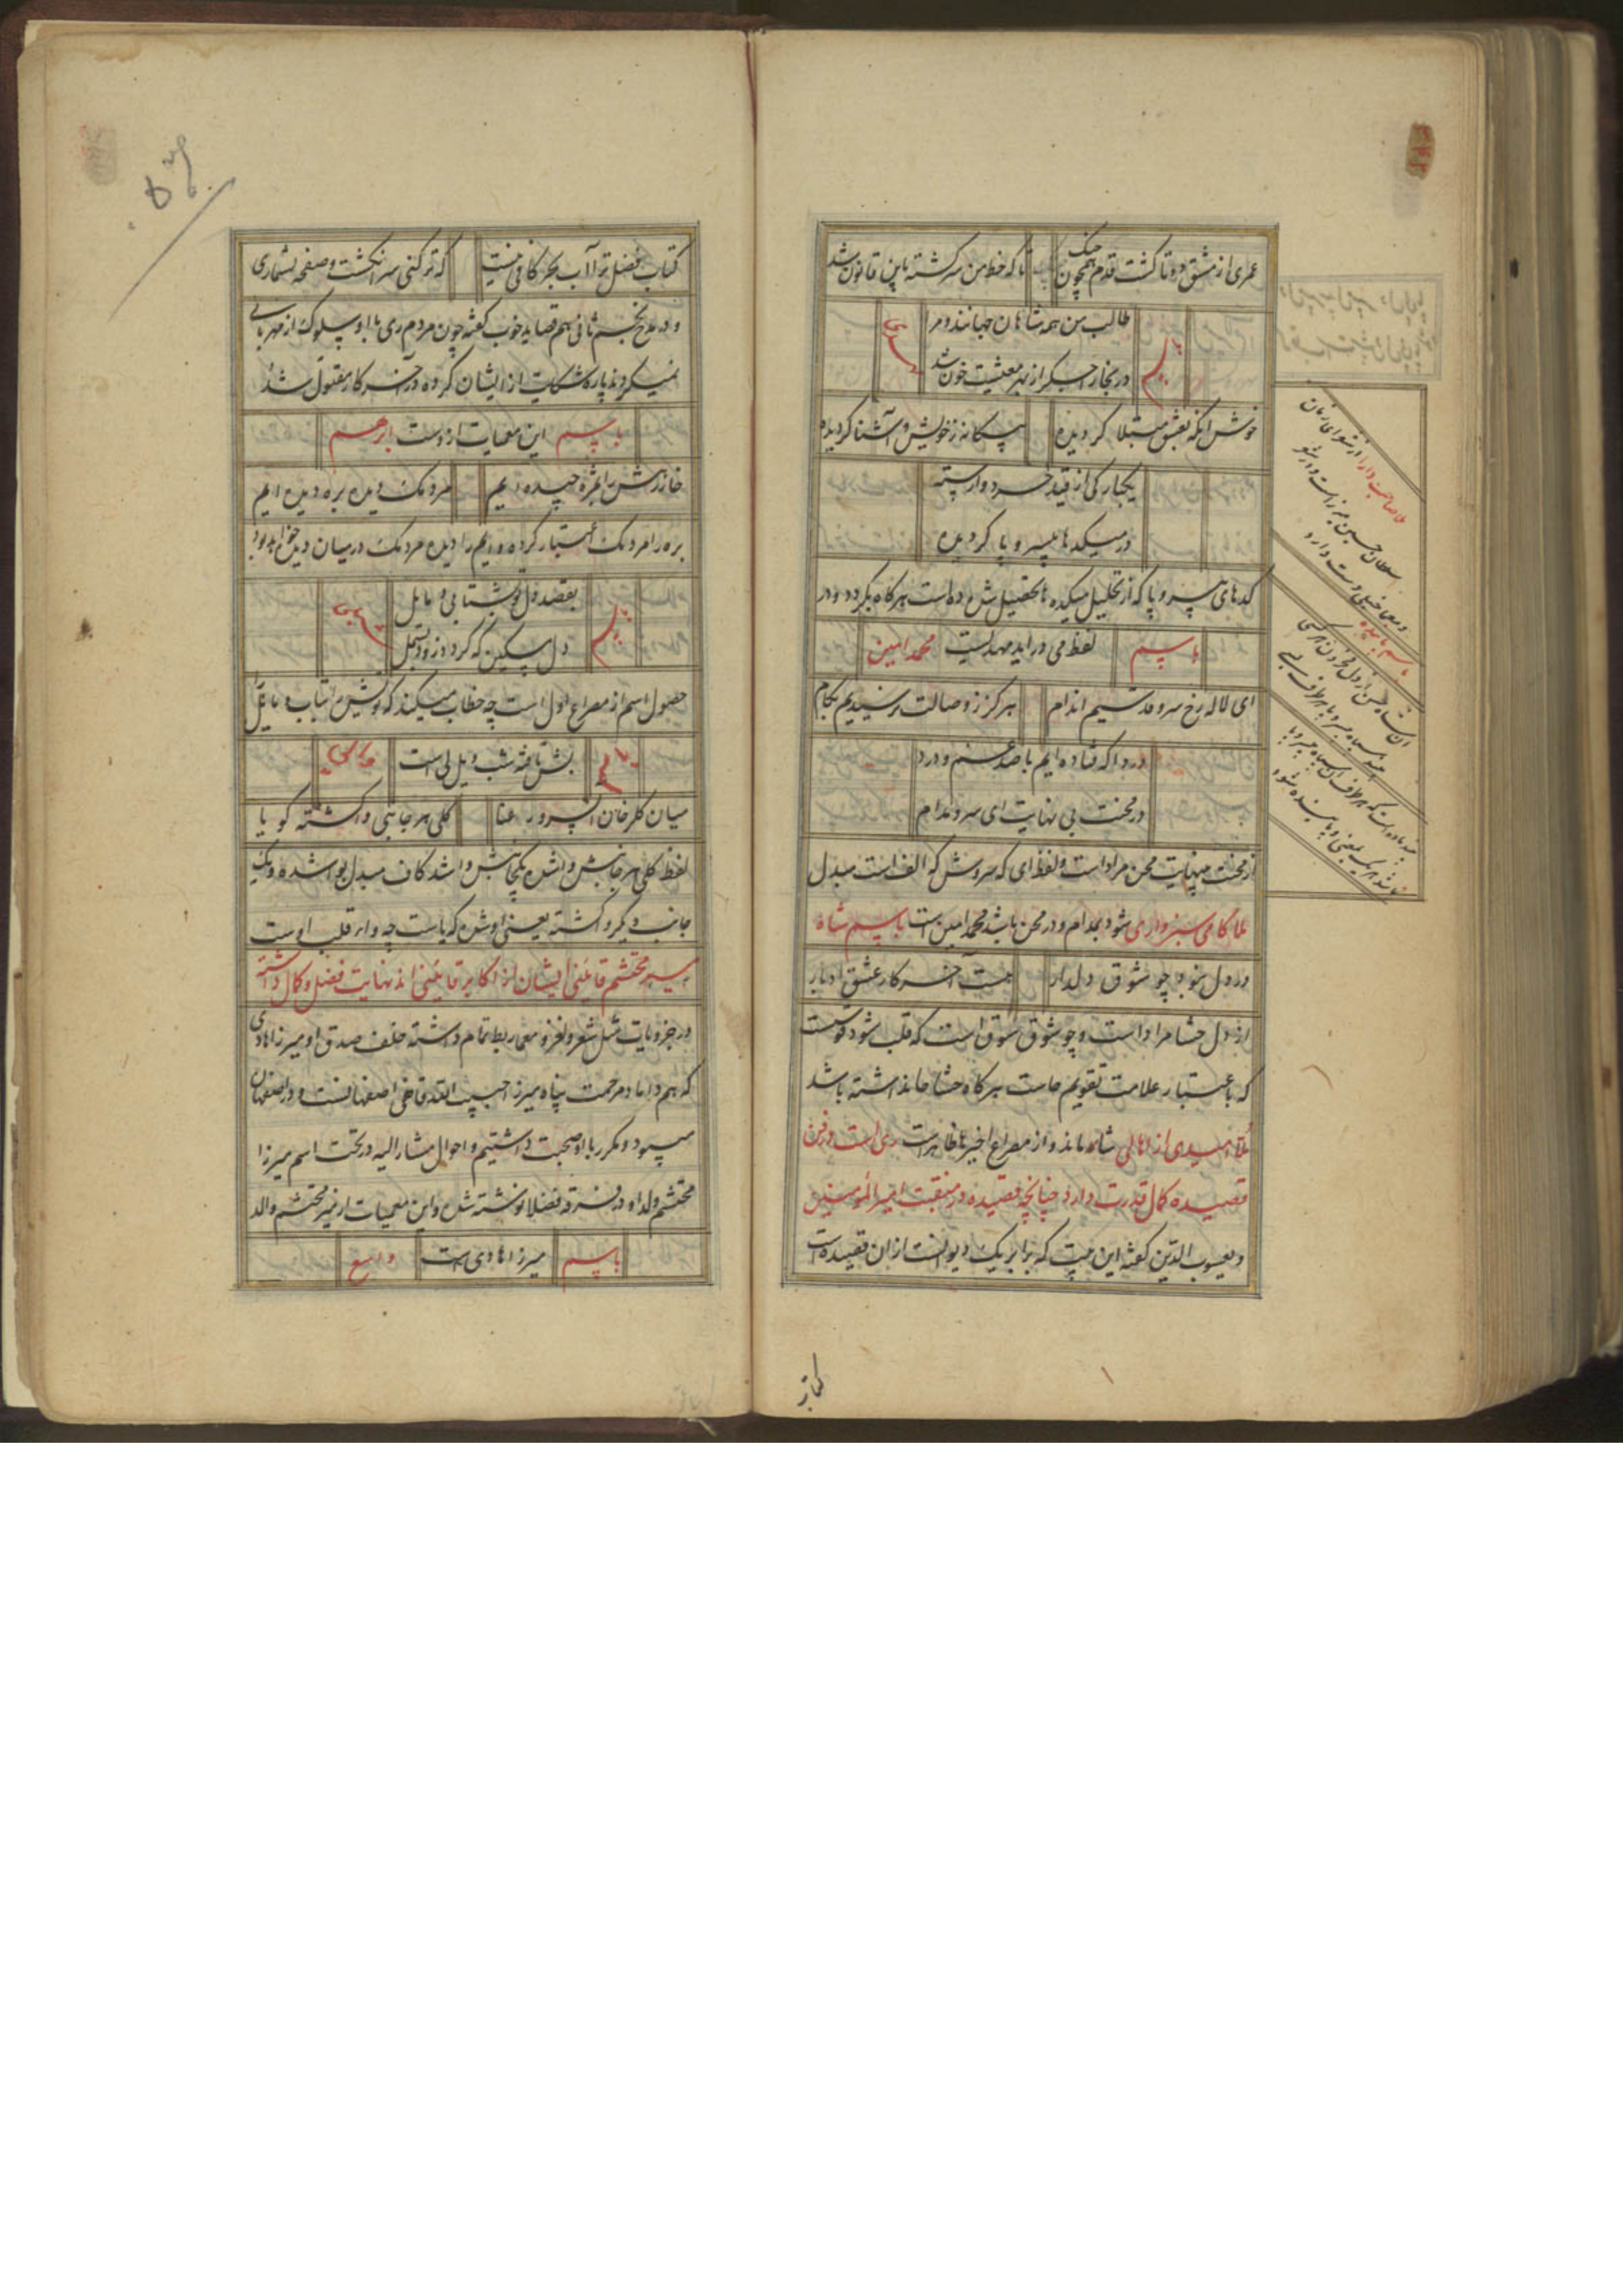 عمری از مشق دو تا گشت قدم همچون چنک
تا که خط من سر کشته باین قانون شد
طالب من همه شاهان جهانند و مرا
در بخارا جکر از بهر معیشت خون شد
خوش آنکه بعشق مبتلا کردیده
بیکانه ز خویش و آشنا کردیده
یکبارکی از قید خرد وارسته
در میکدها بی سر و پا کردیده
کدهای بی سر و پا که از تحلیل میکده ها تحصیل شده داست هر کاه بکردد و در
لفظ می در اید مهدیست باسم محمد امین
ای لاله رخ سرو قد سیم اندام
هرکز ز وصالت نرسیدیم بکام
دردا که فتاده ایم با صد غم و درد
در محنت بی نهایت ای سرو مدام
از محنت بینهایت محن مراد است و لفظ ای که سروش که الف است مبدل
ملا کامی سبزواری شود بمدام و در محن باشد محمد امین است باسم شاه
در دل بنود چو شوق دلدار
هست آخر کار عشق ادبار
از دل حشا مراد است و چو شوق سوق است که قلب شود قوس است
که باعتبار علامت تقویم حاست هر کاه حشا حا نداشته باشد
ملا امیدی از اهالی شاه ماند و از مصراع اخیر ها ظاهر است ری است و در فن
قصیده کمال قدرت دارد چنانچه قصیده در منقبت امیر المؤمنین
و یعسوب الدین کفته این بیت که برابر یک دیوانست از ان قصیده است
کتاب
ملا صاحب دارا از شعرای زمان
سلطان حسین میرزاست و در شعر
و معما خیلی دست دارد
کتاب فضل ترا آب بحر کافی نیست
که تر کنی سر انکشت و صفحه بشماری
و در مدح نجم ثانی هم قصاید خوب کفته چون مردم ری با او سلوک از مهربانی
نمیکردند پاره شکایت از ایشان کرده در آخر کار مقتول شد
این معمیات ازوست باسم ابرهیم
مردمک دیده بره دیده ایم
بره را مردمک اعتبار کرده و ایم را دیده مردمک در میان دیده خواهد بود
بقصد دل توشتابی و مایل
دل مسکین که کردد زود بسمل
حصول اسم از مصراع اول است چه خطاب میکند که توشین تاب و مایل
میان کلرخان آن سرو رعنا
کلی هر جانبی واکشته کویا
لفظ کلی هر جانبش وا شده یکجانبش وا شد کاف مبدل بوا شده و یک
جانب دیکر واکشته یعنی اوشده که یاست چه وا در قلب اوست
میر محتشم قاینی ایشان از اکابر قاینی اند نهایت فضل و کمال داشته
در جزویات مثل شعر و لغز و معما ربط تمام داشته خلف صدق او میرزا هادی
که هم داماد مرحمت پناه میرزا حبیب الله قاضی اصفهانست و در اصفهان
میبود و مکرر با او صحبت داشتیم و احوال مشار الیه در تحت اسم میرزا
محتشم ولد او در فرقه فضلا نوشته شده و این معمیات از میر محتشم والد
میرزا هادی است باسم واسع